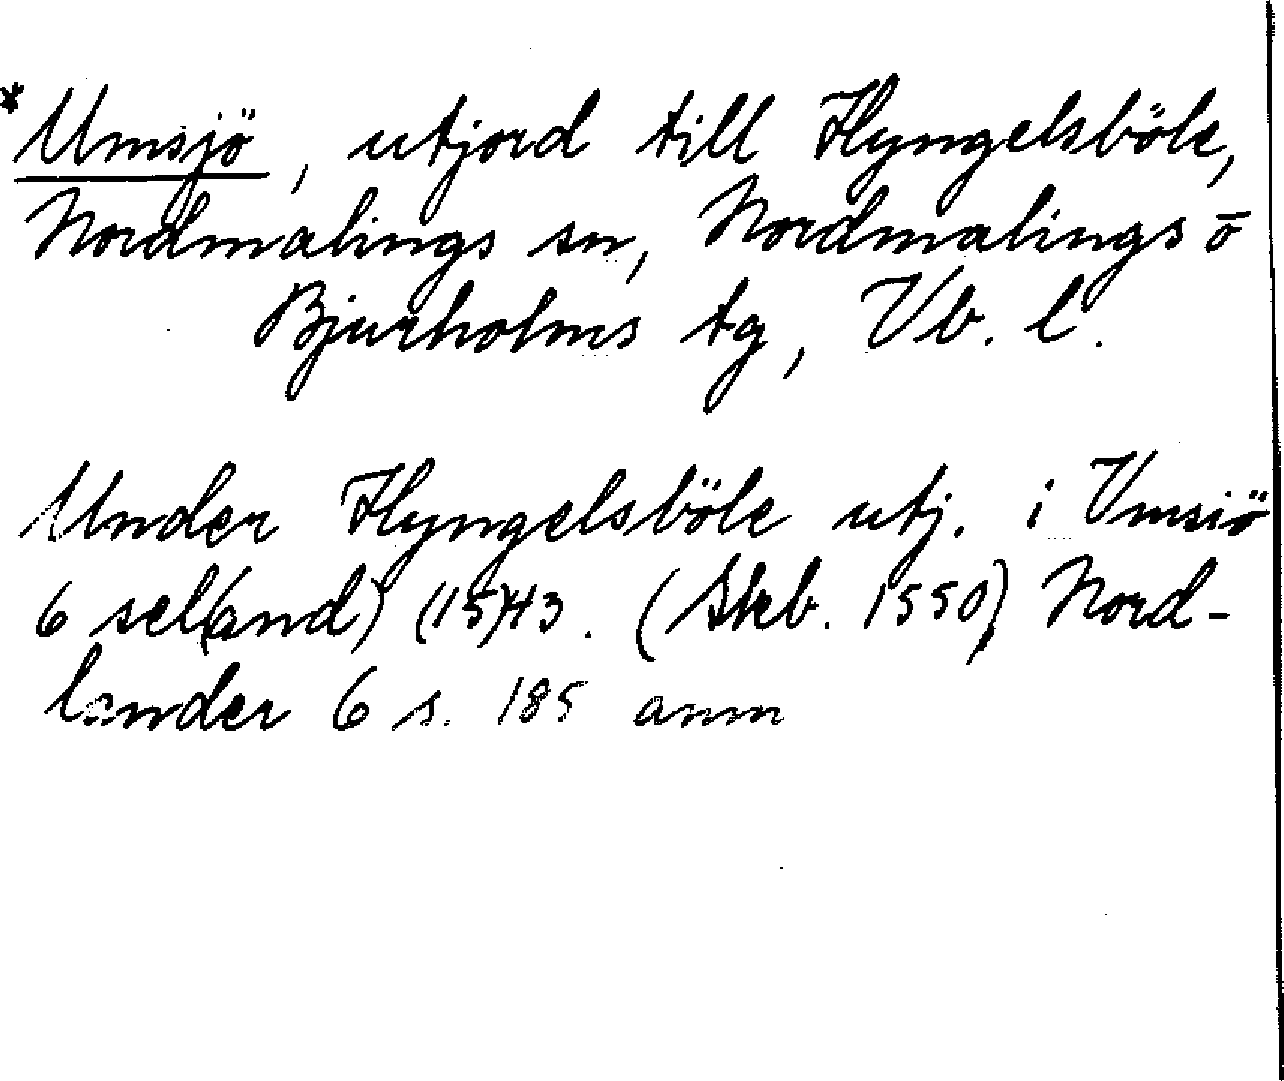 *Umsjö, utjord till Hyngelsböle,
Nordmalings sn, Nordmalings o
Bjurholms tg, Vb. l.
Under Hyngelsböle utj. i Vmsiö
6 sel(and) (15)43. (Skb. 1550) Nord-
lander 6 s. 185 anm